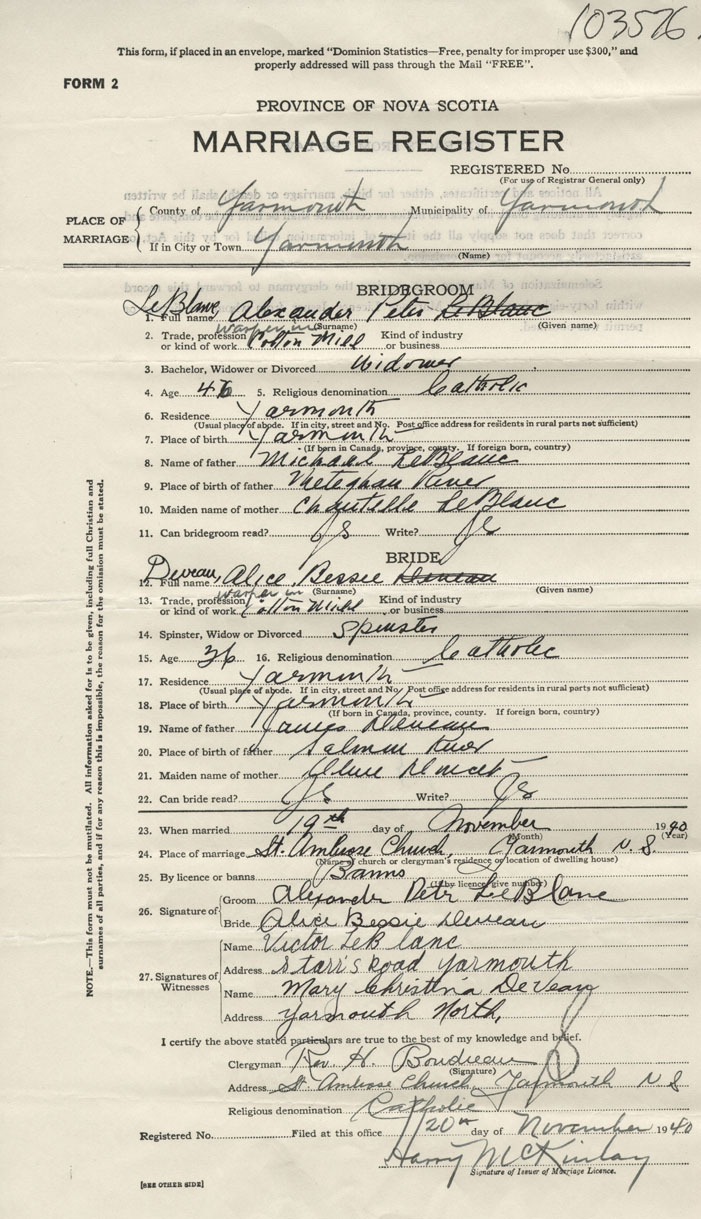 103576.
This form, if placed in an envelope, marked "Dominion Statistics—Free, penalty for improper use $300," and
properly addressed will pass through the Mail "FREE".
FORM 2
PROVINCE OF NOVA SCOTIA
MARRIAGE REGISTER
REGISTERED No.
(For use of Registrar General only)
PLACE OF MARRIAGE
County of Yarmouth Municipality of Yarmouth
If in City or Town Yarmouth
(Name)
BRIDEGROOM
1. Full name LeBlanc, Alexander Peter LeBlanc
(Surname) (Given name)
2. Trade, profession or kind of work warper in Cotton Mill Kind of industry or business
3. Bachelor, Widower or Divorced Widower
4. Age 46 5. Religious denomination Catholic
6. Residence Yarmouth
(Usual place of abode. If in city, street and No. Post office address for residents in rural parts not sufficient)
7. Place of birth Yarmouth
(If born in Canada, province, county. If foreign born, country)
8. Name of father Michael LeBlanc
9. Place of birth of father Meteghan River
10. Maiden name of mother LeBlanc
11. Can bridegroom read? Yes Write? Yes
BRIDE
12. Full name Deveau, Alice Bessie Deveau
(Surname) (Given name)
13. Trade, profession or kind of work warper in Cotton Mill Kind of industry or business
14. Spinster, Widow or Divorced Spinster
15. Age 36 16. Religious denomination Catholic
17. Residence Yarmouth
(Usual place of abode. If in city, street and No. Post office address for residents in rural parts not sufficient)
18. Place of birth Yarmouth
(If born in Canada, province, county. If foreign born, country)
19. Name of father James Deveau
20. Place of birth of father Salmon River
21. Maiden name of mother Doucet
22. Can bride read? Yes Write? Yes
23. When married 19th day of November 1940
(Month) (Year)
24. Place of marriage St. Ambrose Church, Yarmouth N. S.
(Name of church or clergyman's residence or location of dwelling house)
25. By licence or banns Banns
(If by licence give number)
26. Signature of
Groom Alexander Peter LeBlanc
Bride Alice Bessie Deveau
27. Signatures of Witnesses
Name Victor LeBlanc
Address Starr's Road Yarmouth
Name Mary Christina DeVeau
Address Yarmouth North,
I certify the above stated particulars are true to the best of my knowledge and belief.
Clergyman Rev. H. Boudreau
(Signature)
Address St. Ambrose Church, Yarmouth N S
Religious denomination Catholic
Registered No. Filed at this office 20th day of November 1940
Harry McKinlay
Signature of Issuer of Marriage Licence.
[SEE OTHER SIDE]
NOTE.—This form must not be mutilated. All information asked for is to be given, including full Christian and
surnames of all parties, and if for any reason this is impossible, the reason for the omission must be stated.